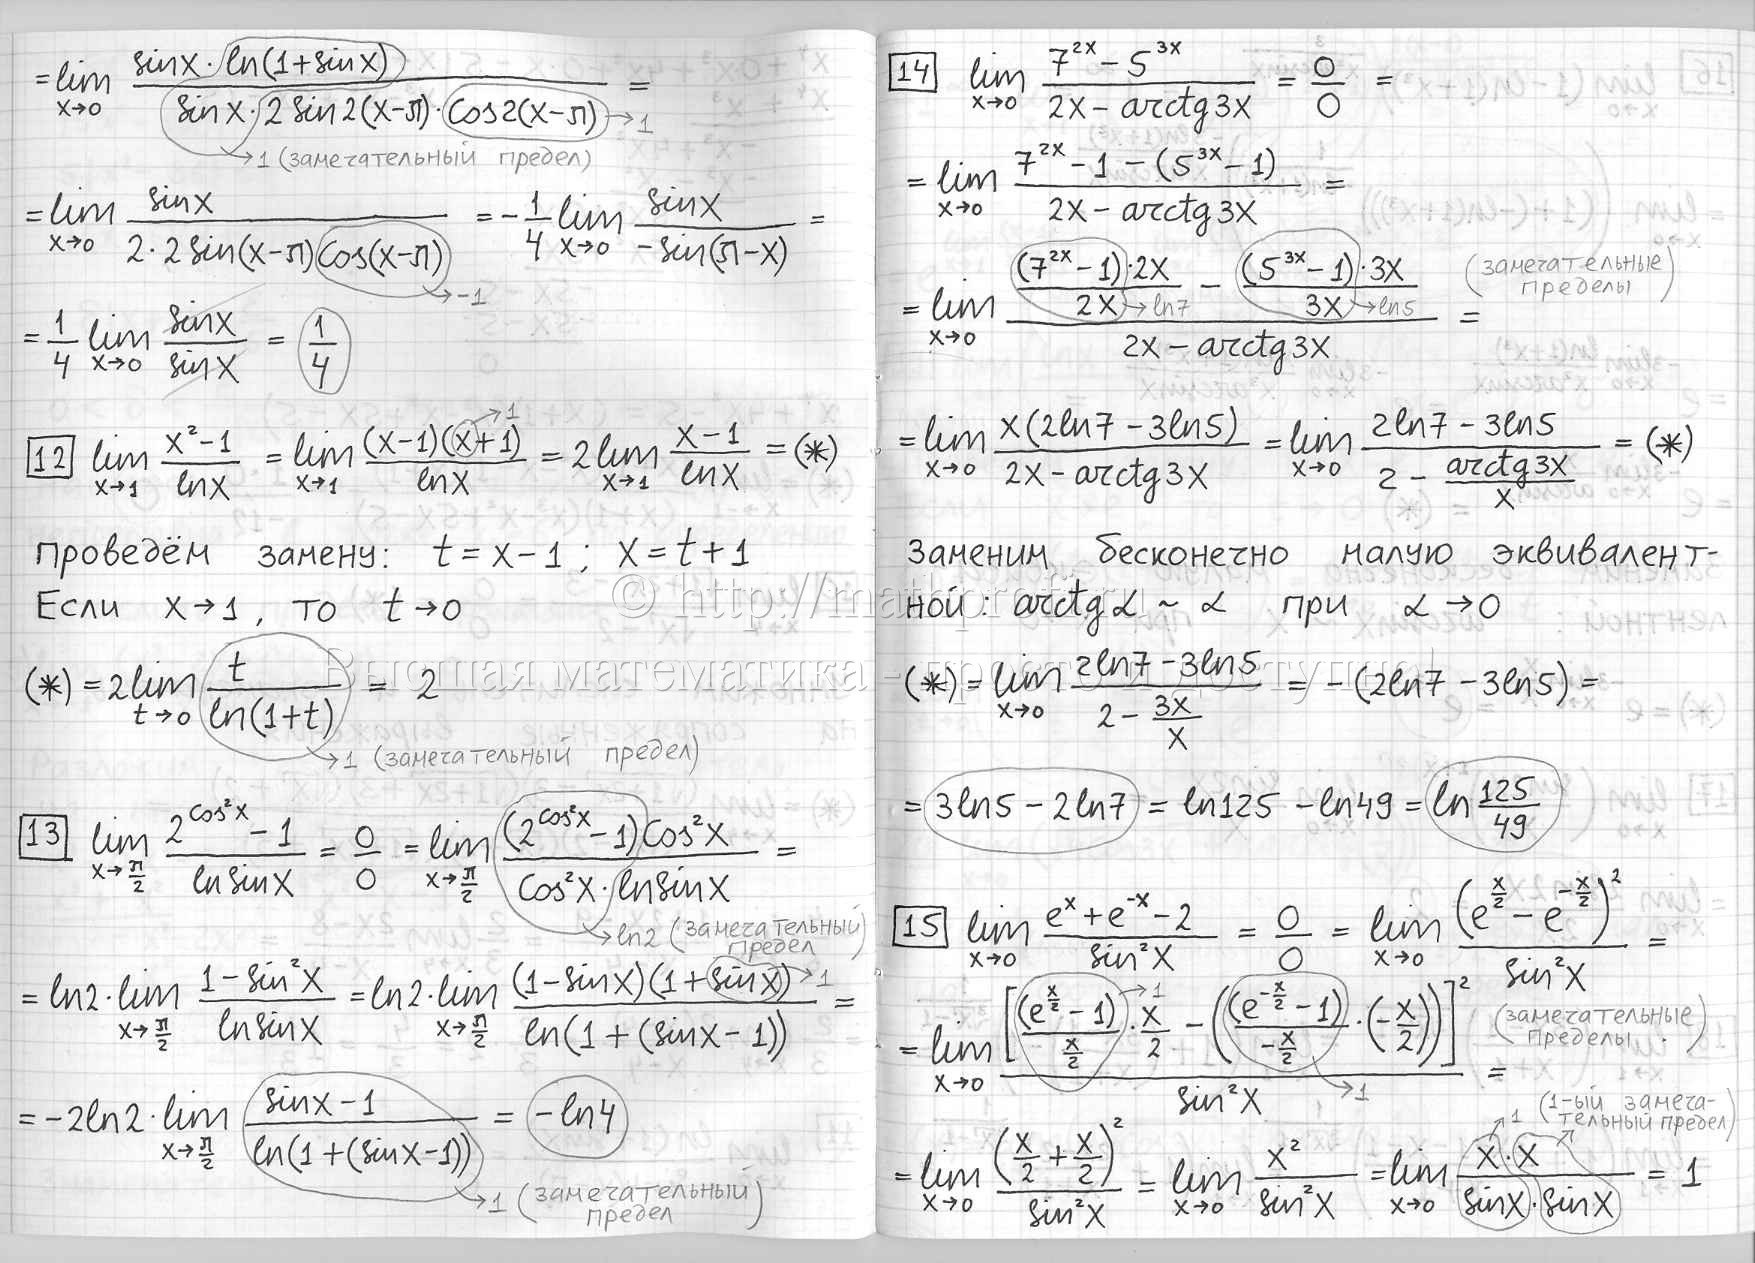 = lim x→0 (sinx · ln(1+sinx)) / (sinx · 2sin2(x−π) · cos2(x−π)) =
→1
→1 (замечательный предел)
= lim x→0 sinx / (2·2sin(x−π)cos(x−π)) = −1/4 lim x→0 sinx / (−sin(π−x)) =
→−1
= 1/4 lim x→0 sinx / sinx = 1/4
→1
12 lim x→1 (x²−1)/lnx = lim x→1 (x−1)(x+1)/lnx = 2lim x→1 (x−1)/lnx = (*)
проведём замену: t = x−1 ; x = t+1
Если x→1, то t→0
(*) = 2lim t→0 t/ln(1+t) = 2
→1 (замечательный предел)
13 lim x→π/2 (2^cos²x − 1)/lnsinx = 0/0 = lim x→π/2 (2^cos²x − 1)cos²x / (cos²x · lnsinx) =
→ln2 (замечательный предел)
= ln2 · lim x→π/2 (1−sin²x)/lnsinx = ln2 · lim x→π/2 (1−sinx)(1+sinx) / ln(1+(sinx−1)) =
→1
= −2ln2 · lim x→π/2 (sinx−1)/ln(1+(sinx−1)) = −ln4
→1 (замечательный предел)
14 lim x→0 (7^2x − 5^3x)/(2x − arctg3x) = 0/0 =
= lim x→0 (7^2x − 1 − (5^3x − 1))/(2x − arctg3x) =
= lim x→0 ((7^2x − 1)·2x/2x − (5^3x − 1)·3x/3x)/(2x − arctg3x) =
→ln7 →ln5 (замечательные пределы)
= lim x→0 x(2ln7 − 3ln5)/(2x − arctg3x) = lim x→0 (2ln7 − 3ln5)/(2 − arctg3x/x) = (*)
Заменим бесконечно малую эквивалент-
ной: arctgα ~ α при α→0
(*) = lim x→0 (2ln7 − 3ln5)/(2 − 3x/x) = −(2ln7 − 3ln5) =
= 3ln5 − 2ln7 = ln125 − ln49 = ln 125/49
15 lim x→0 (e^x + e^−x − 2)/sin²x = 0/0 = lim x→0 (e^x/2 − e^−x/2)²/sin²x =
= lim x→0 [(e^x/2 − 1)/(x/2) · x/2 − ((e^−x/2 − 1)/(−x/2) · (−x/2))]²/sin²x =
→1 →1 (замечательные пределы.)
= lim x→0 (x/2 + x/2)²/sin²x = lim x→0 x²/sin²x = lim x→0 x·x/(sinx·sinx) = 1
1 (1-ый замеча-
тельный предел)
© http://mathprofi.ru
Высшая математика – просто и доступно!